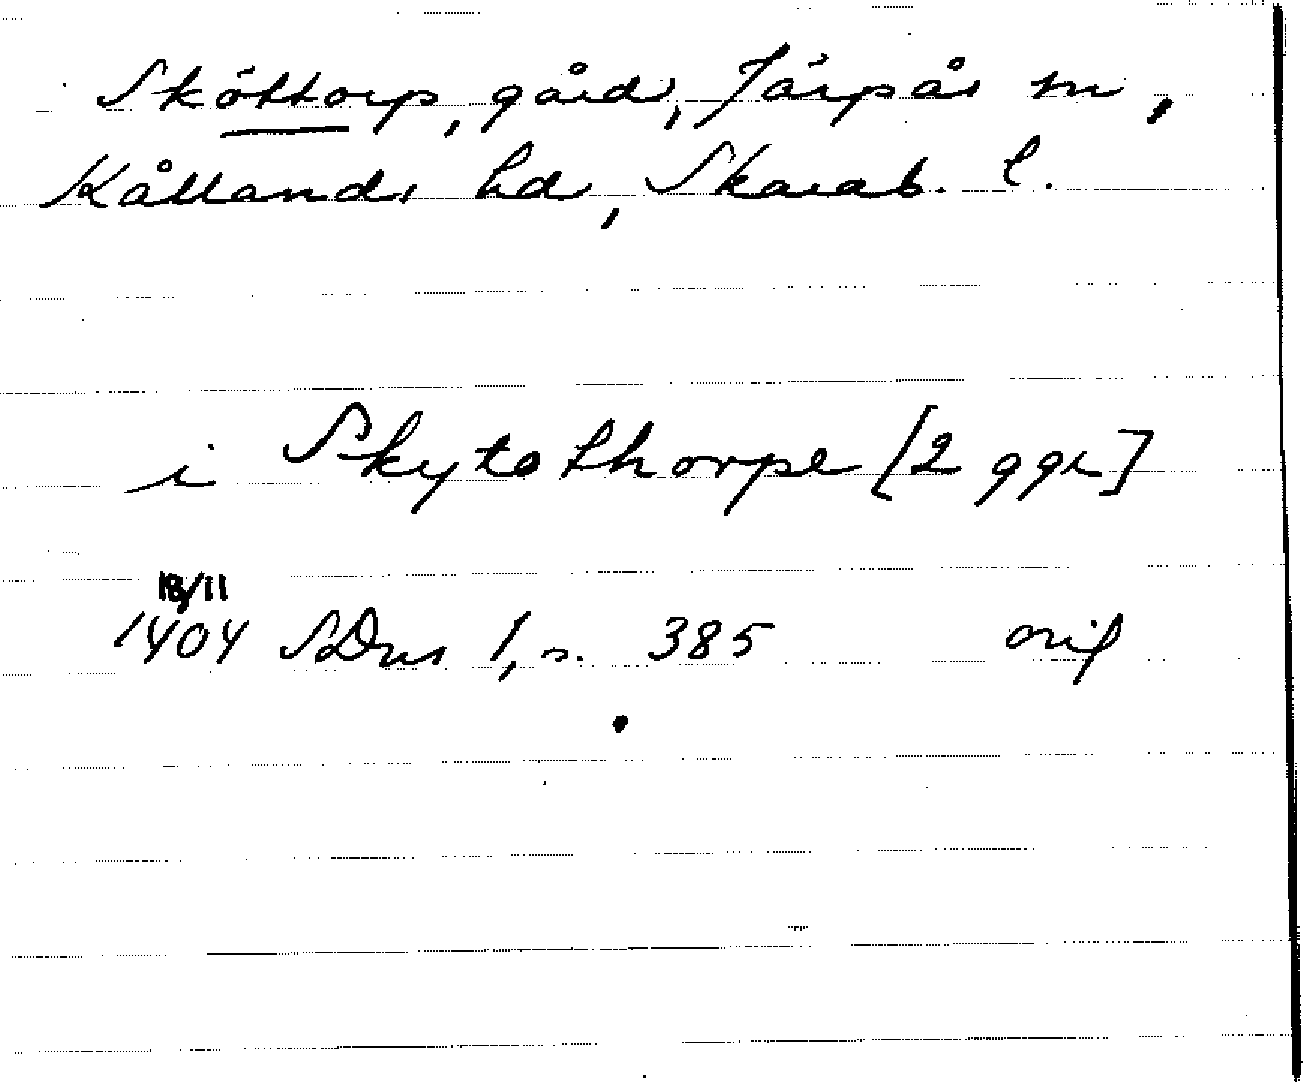 Sköttorp, gård, Järpås sn,
Kållands hd, Skarab. l.
i Skytethorpe [2 ggr]
18/11
1404 SDns 1, s. 385 orig